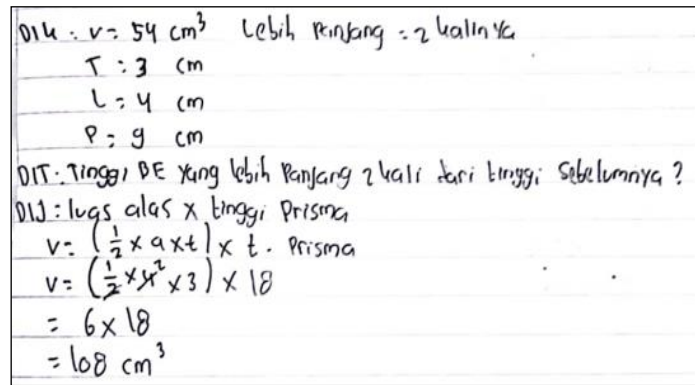 DIK : V = 54 cm³ Lebih Panjang = 2 kalinya
T : 3 cm
L = 4 cm
P = 9 cm
DIT : Tinggi BE yang lebih Panjang 2 kali dari tinggi Sebelumnya ?
DIJ : luas alas x tinggi Prisma
V = (1/2 x a x t) x t. Prisma
V = (1/2 x 4² x 3) x 18
= 6 x 18
= 108 cm³